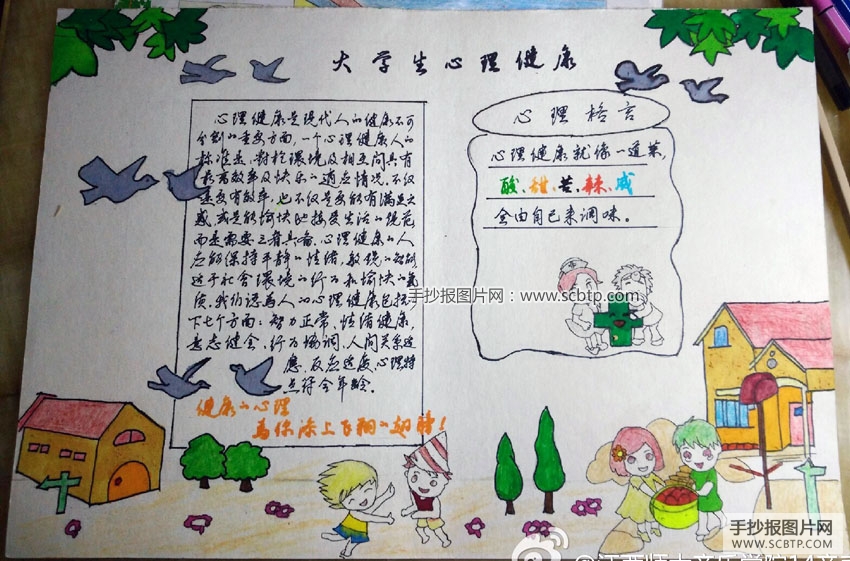 大学生心理健康
心理健康是现代人的健康不可
分割的重要方面,一个心理健康人的
标准是,对于環境及相互间具有
最高效率及快乐的适应情况。不仅
是要有效率,也不仅是要能有满足之
感,或是能愉快地接受生活的规范,
而是需要三者具备。心理健康的人
应能保持平静的情绪,敏锐的智能,
适于社会環境的行为和愉快的氣
质。我们認為人的心理健康包括以
下七个方面:智力正常、情绪健康、
意志健全、行为協調、人间关系适
應、反应适度、心理特
点符合年龄。
健康的心理
為你添上飞翔的翅膀!
心理格言
心理健康就像一道菜,
酸、甜、苦、辣、咸
会由自己来调味。
手抄报图片网:www.scbtp.com
手抄报图片网
WWW.SCBTP.COM